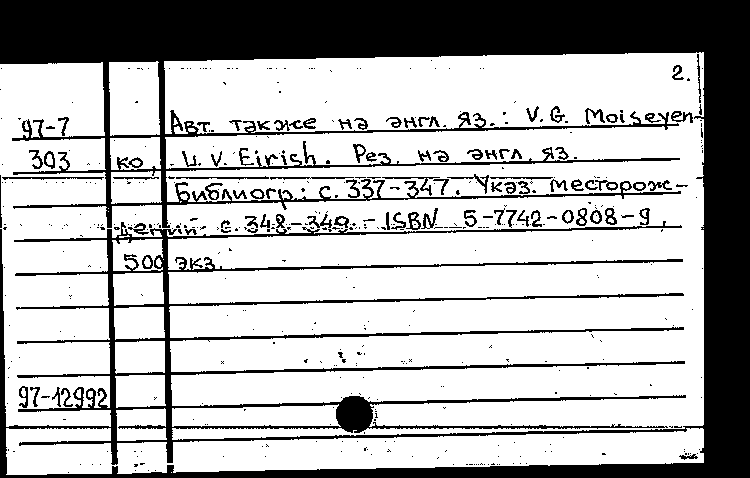 2.
97-7 Авт. также на англ. яз.: V.G. Moiseyen-
303 ко, L. V. Eirish. Рез. на англ. яз.
Библиогр.: с. 337-347. Указ. месторож-
дений: с. 348-349. - ISBN 5-7742-0808-9,
500 экз.
97-12992